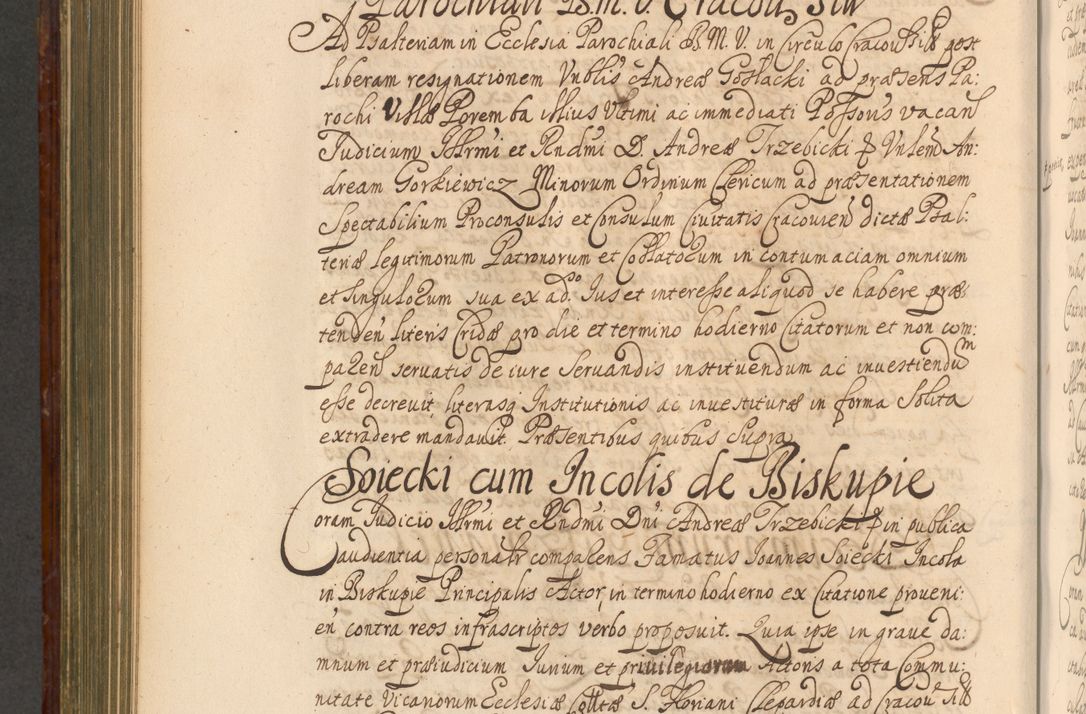 Parochiali B. M. V. Cracou, Sitæ
Ad Psalteriam in Ecclesia Parochiali B. M. V. in Circulo Cracou post
liberam resignationem Vnblis Andreæ Gosłacki ad præsens Pa:
rochi Villæ Poremba illius Vltimi ac immediati Possoris vacan
Judicium Illrmi et Rndmi D. Andreæ Trzebicki Vnlem An:
dream Gorkiewicz Minorum Ordinum Clericum ad præsentationem
Spectabilium Proconsulis et Consulum Ciuitatis Cracouien dictæ Psal:
teriæ legitimorum Patronorum et Collatorum in contumaciam omnium
et singulorum sua ex ad.do Ius et interesse aliquod se habere præ:
tenden literis Cridæ pro die et termino hodierno Citatorum et non com:
paren seruatis de iure Seruandis instituendum ac inuestiendum
esse decreuit, literasq Institutionis ac inuestituræ in forma Solita
extradere mandauit. Præsentibus quibus Supra
Spiecki cum Incolis de Biskupie
Coram Judicio Illrmi et Rndmi Dni Andreæ Trzebicki in publica
audientia personalr comparens Famatus Joannes Spiecki Incola
in Biskupie Principalis Actor, in termino hodierno ex Citatione proueni:
en contra reos infrascriptos verbo proposuit. Quia ipse in graue da:
mnum et præiudicium Iurium et priuilegiorum Actoris a tota Commu:
nitate Vicariorum Ecclesiæ Colltæ S. Floriani Clepardiæ ad Cracou